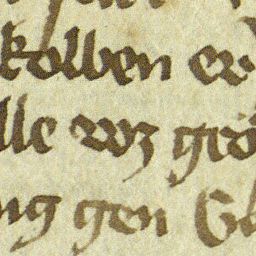 kolben er
lle vnz grö
ng gen Gl